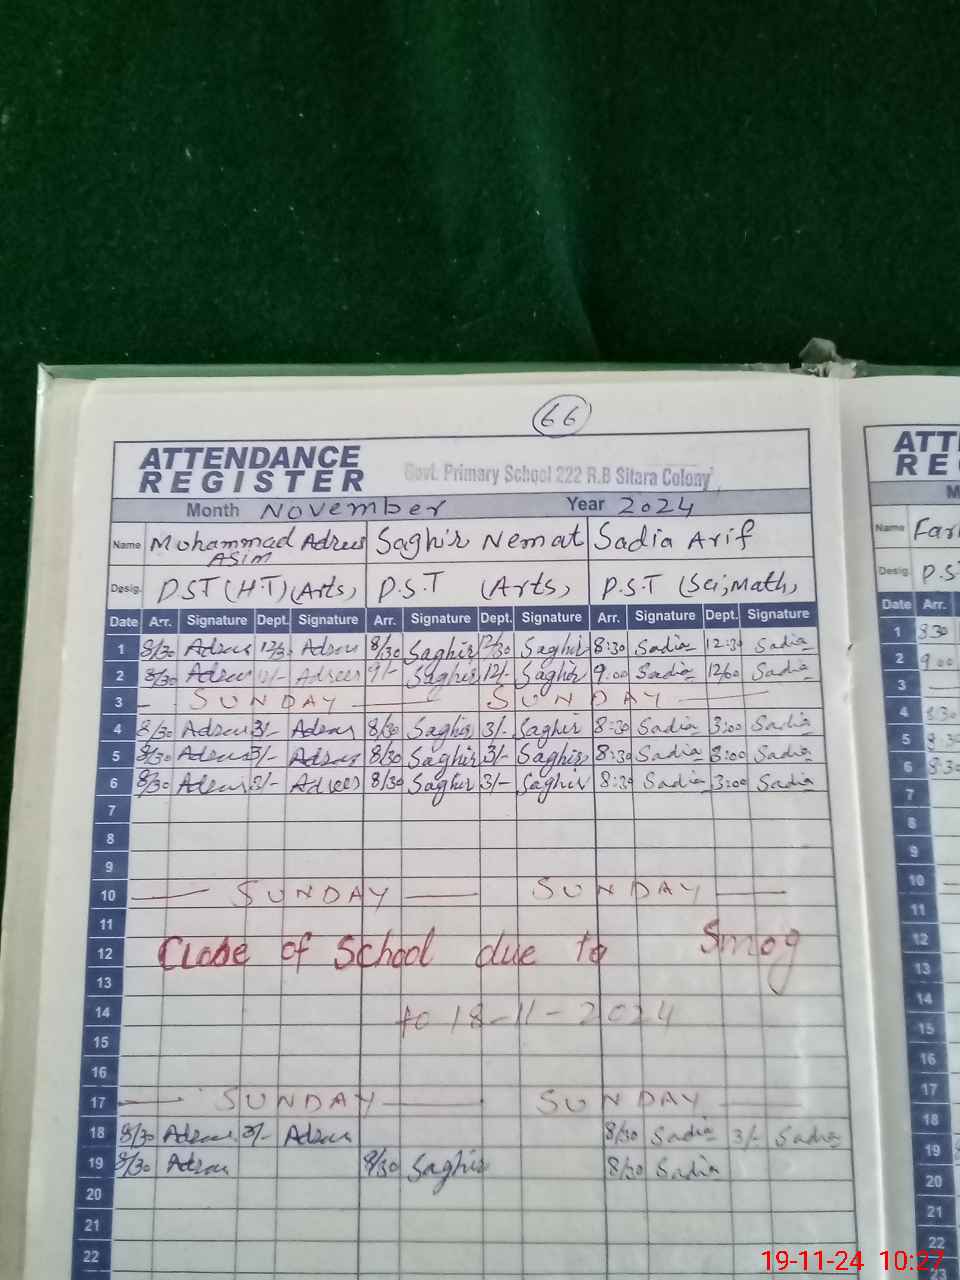 66
ATTENDANCE
REGISTER
Govt. Primary School 222 R.B Sitara Colony
Month November Year 2024
Name Muhammad Adrees Saghir Nemat Sadia Arif
ASim
Desig. P.S.T (H.T) (Arts, P.S.T (Arts, P.S.T (Sci, Math,
Date Arr. Signature Dept. Signature Arr. Signature Dept. Signature Arr. Signature Dept. Signature
1 8/30 Adrees 12/30 Adrees 8/30 Saghir 12/30 Saghir 8:30 Sadia 12:30 Sadia
2 8/30 Adrees 12/- Adrees 9/- Saghir 12/- Saghir 9:00 Sadia 12/00 Sadia
3 SUNDAY SUNDAY
4 8/30 Adrees 3/- Adrees 8/30 Saghir 3/- Saghir 8:30 Sadia 3:00 Sadia
5 8/30 Adrees 3/- Adrees 8/30 Saghir 3/- Saghir 8:30 Sadia 3:00 Sadia
6 8/30 Adrees 3/- Adrees 8/30 Saghir 3/- Saghir 8:30 Sadia 3:00 Sadia
7
8
9
10 SUNDAY SUNDAY
11
12 Close of School due to Smog
13
14 to 18-11-2024
15
16
17 SUNDAY SUNDAY
18 8/30 Adrees 3/- Adrees 8/30 Sadia 3/- Sadia
19 8/30 Adrees 8/30 Saghir 8/30 Sadia
20
21
22
ATT
RE
M
Name Far
Desig. P.S
Date Arr.
1 830
2 9 00
3
4 8.30
5 8 30
6 8.30
7
8
9
10
11
12
13
14
15
16
17
18
19
20
21
22
23
19-11-24 10:27